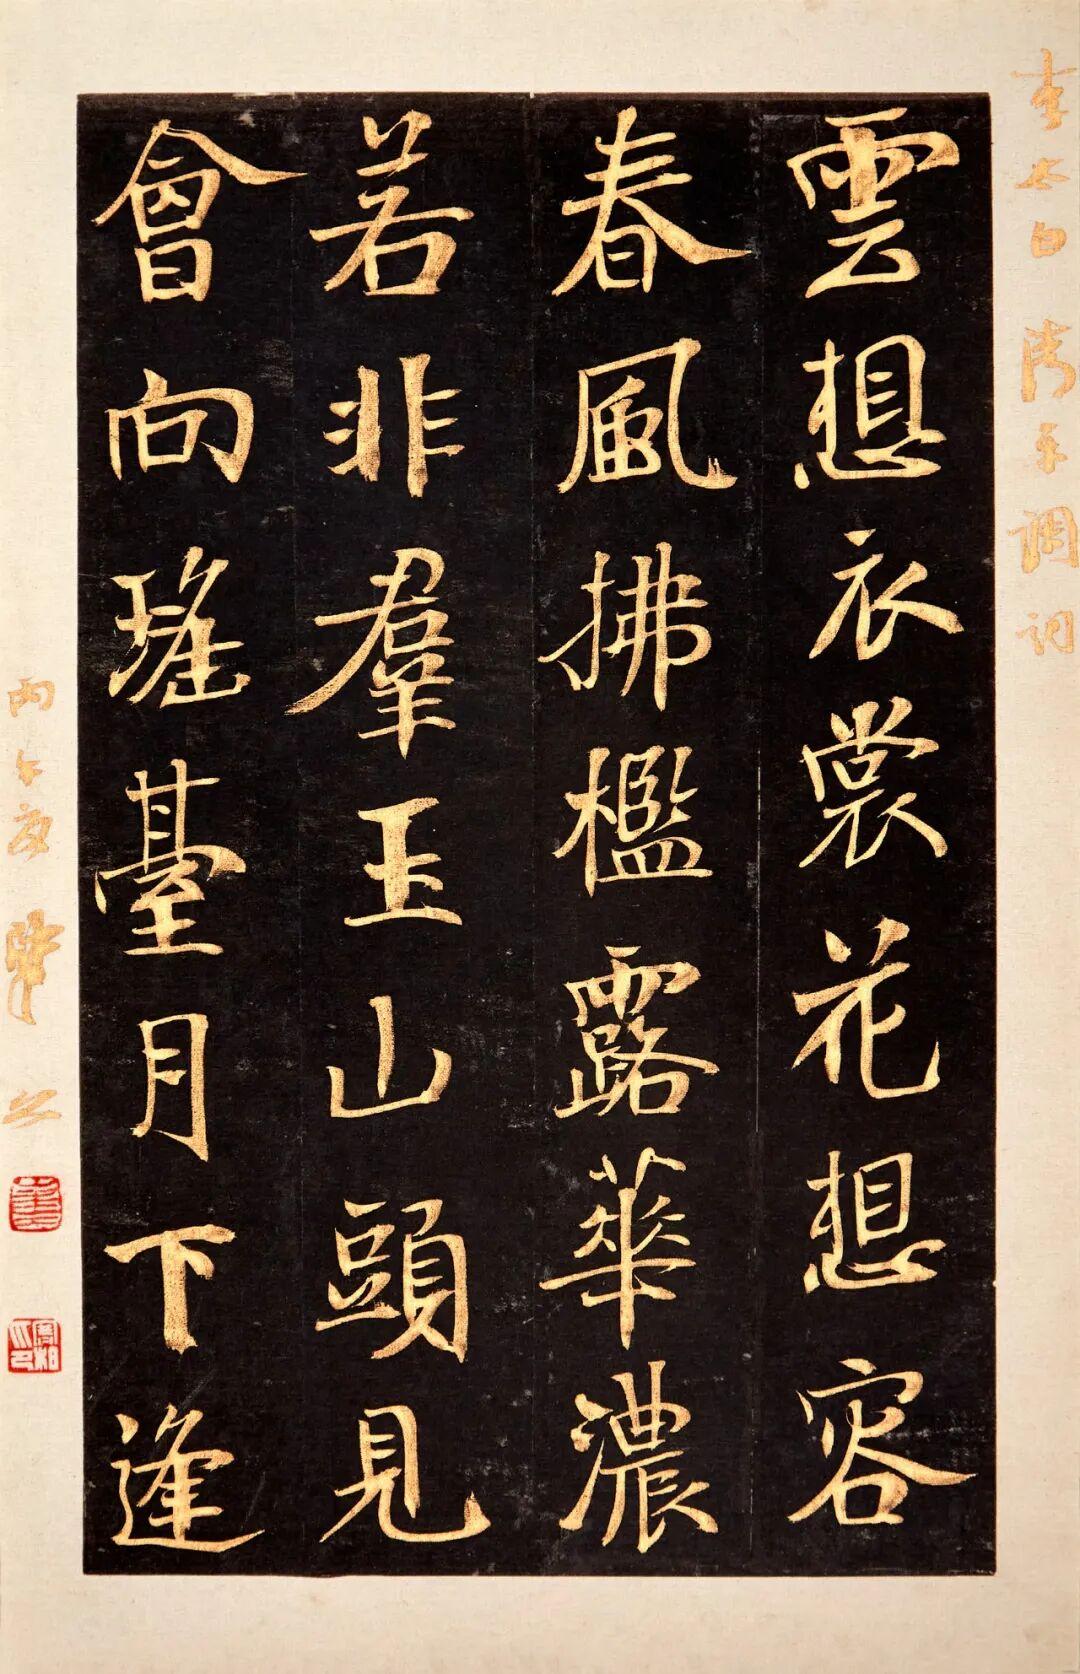 李太白清平調詞
雲想衣裳花想容
春風拂檻露華濃
若非羣玉山頭見
會向瑤臺月下逢
丙午夏 肇公